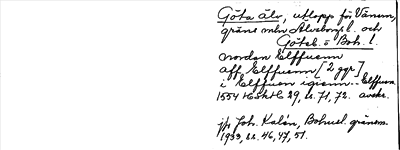 Göta älv, utlopp för Vänern,
gräns mln Älvsborgs l. och
Göteb. o Boh. l.
nordan Elffuenn
aff Elffuenn [2 ggr]
i Elffuen igienn.. Elffuen
1554 HSH 29, s. 71, 72. avskr.
jfr Joh. Kalén, Bohusl. gränsen
1933, ss. 46, 47, 51.